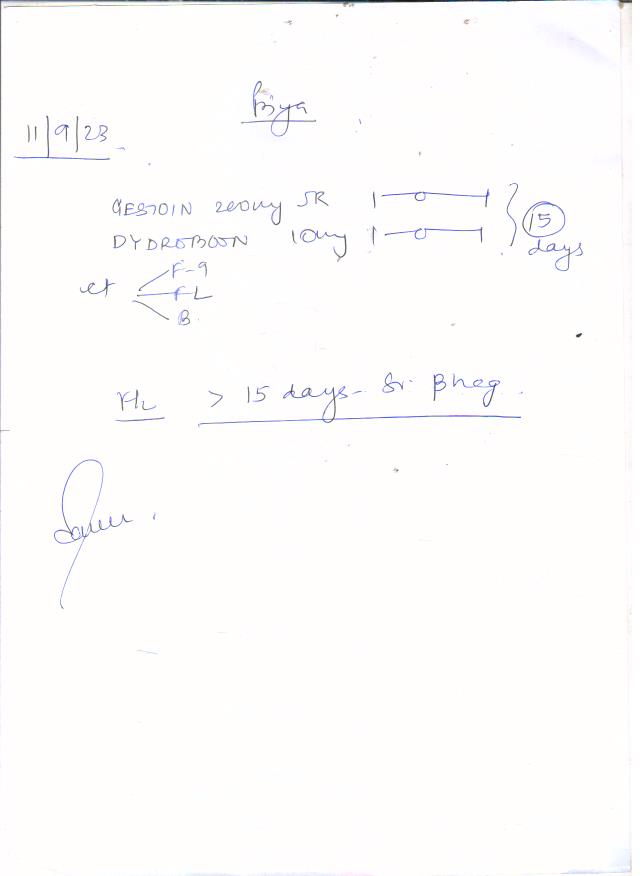 Priya
11/9/23
GESTOIN 200mg SR 1-0-1
DYDROBOON 10mg 1-0-1
} 15 days
ct
F-9
FL
B.
> 15 days - Sr. βhcg.